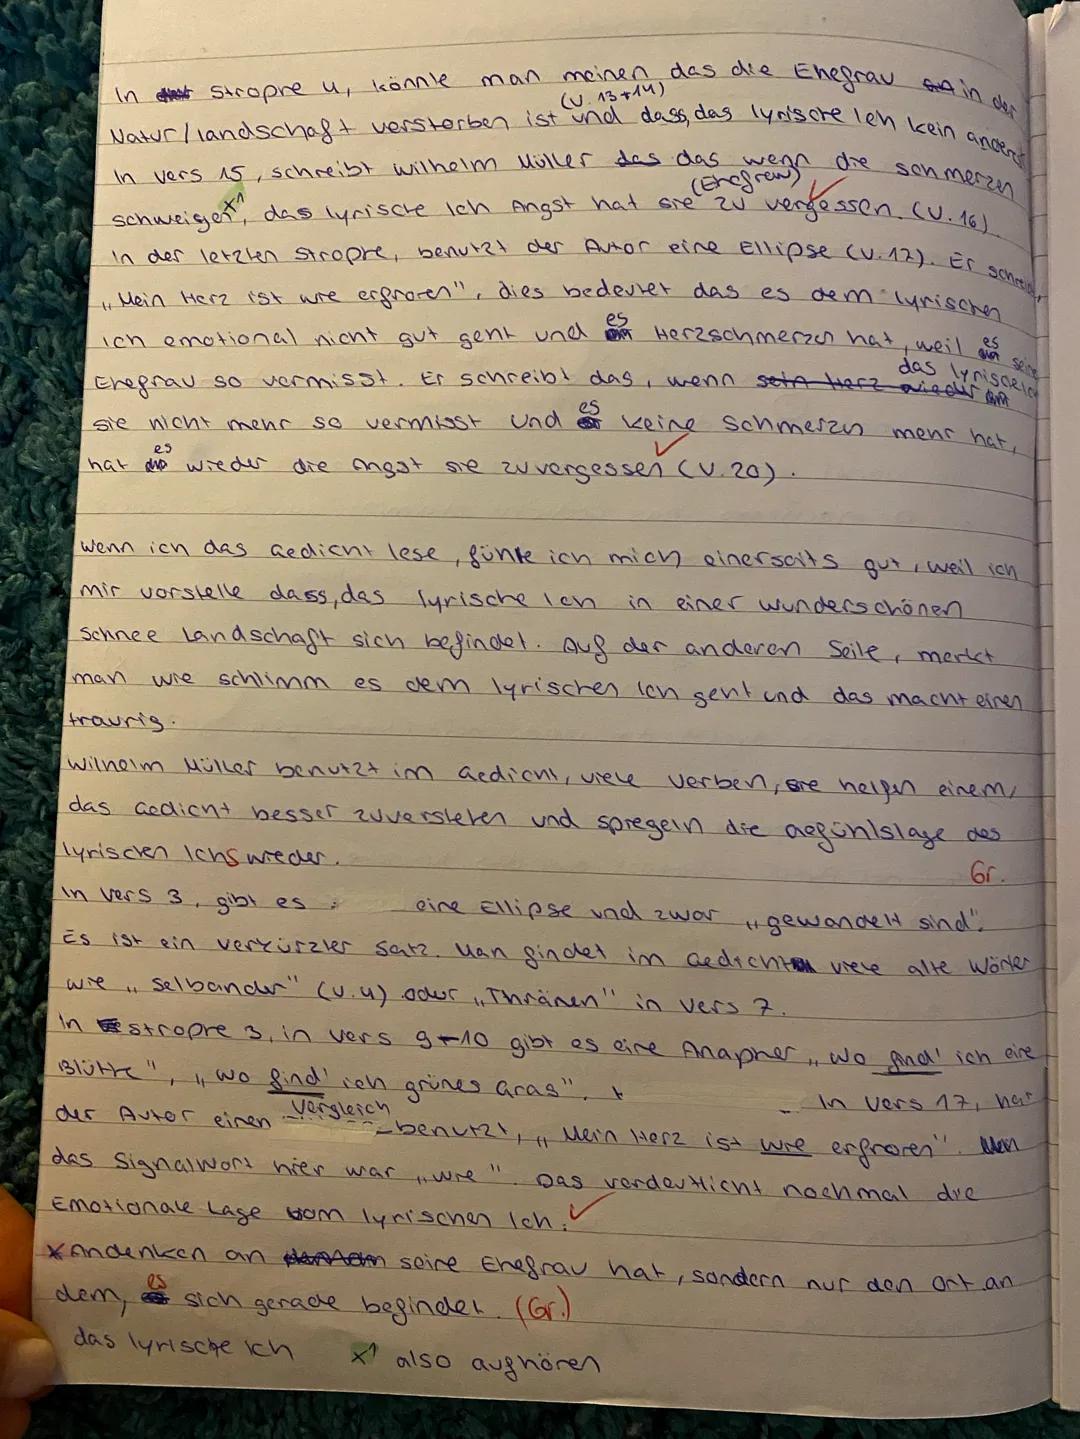 In Strophe 4, könnte man meinen das die Ehefrau in der
(V. 13+14)
Natur/landschaft verstorben ist und dass, das lyrische Ich kein anderes
In Vers 15, schreibt Wilhelm Müller das wenn die schmerzen
(Ehefrau)
schweigen x1, das lyrische Ich Angst hat sie zu vergessen. (V. 16)
In der letzten Strophe, benutzt der Autor eine Ellipse (V. 17). Er schreibt,
„Mein Herz ist wie erfroren", dies bedeutet das es dem lyrischen
Ich emotional nicht gut geht und es Herzschmerzen hat, weil es seine
Ehefrau so vermisst. Er schreibt das, wenn das lyrische Ich
sie nicht mehr so vermisst und es keine Schmerzen mehr hat,
hat es wieder die Angst sie zuvergessen (V. 20).
Wenn ich das Gedicht lese, fühle ich mich einerseits gut, weil ich
mir vorstelle dass, das lyrische Ich in einer wunderschönen
Schnee Landschaft sich befindet. Auf der anderen Seite, merkt
man wie schlimm es dem lyrischen Ich geht und das macht einen
traurig.
Wilhelm Müller benutzt im Gedicht, viele Verben, sie helfen einem,
das Gedicht besser zuverstehen und spiegeln die Gefühlslage des
lyrischen Ichs wieder.
Gr.
In Vers 3, gibt es eine Ellipse und zwar „gewandelt sind".
Es ist ein verkürzter Satz. Man findet im Gedicht viele alte Wörter
wie „selbander" (V. 4) oder „Thränen" in Vers 7.
In Strophe 3, in Vers 9-10 gibt es eine Anapher „Wo find' ich eine
Blüthe", „Wo find' ich grünes Gras". In Vers 17, hat
der Autor einen Vergleich benutzt, „Mein Herz ist wie erfroren".
das Signalwort hier war „wie". Das verdeutlicht nochmal die
Emotionale Lage vom lyrischen Ich.
x Andenken an seine Ehefrau hat, sondern nur den Ort an
dem, es sich gerade befindet. (Gr.)
das lyrische Ich x1 also aufhören